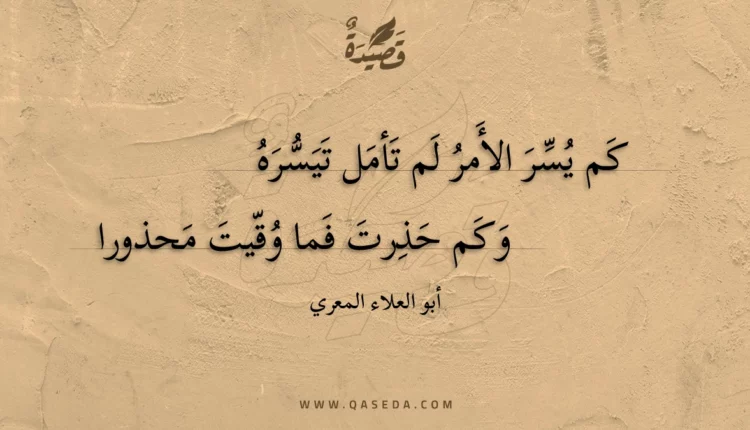 قَصِيدَةٌ
كَم يُسِّرَ الأَمرُ لَم تَأمَل تَيَسُّرَهُ
وَكَم حَذِرتَ فَما وُقّيتَ مَحذورا
أبو العلاء المعري
WWW.QASEDA.COM